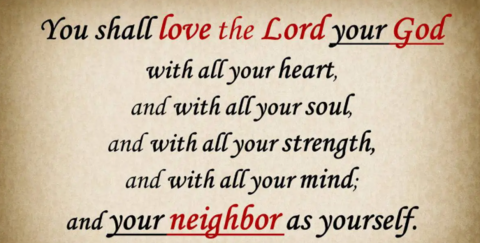 You shall love the Lord your God
with all your heart,
and with all your soul,
and with all your strength,
and with all your mind;
and your neighbor as yourself.